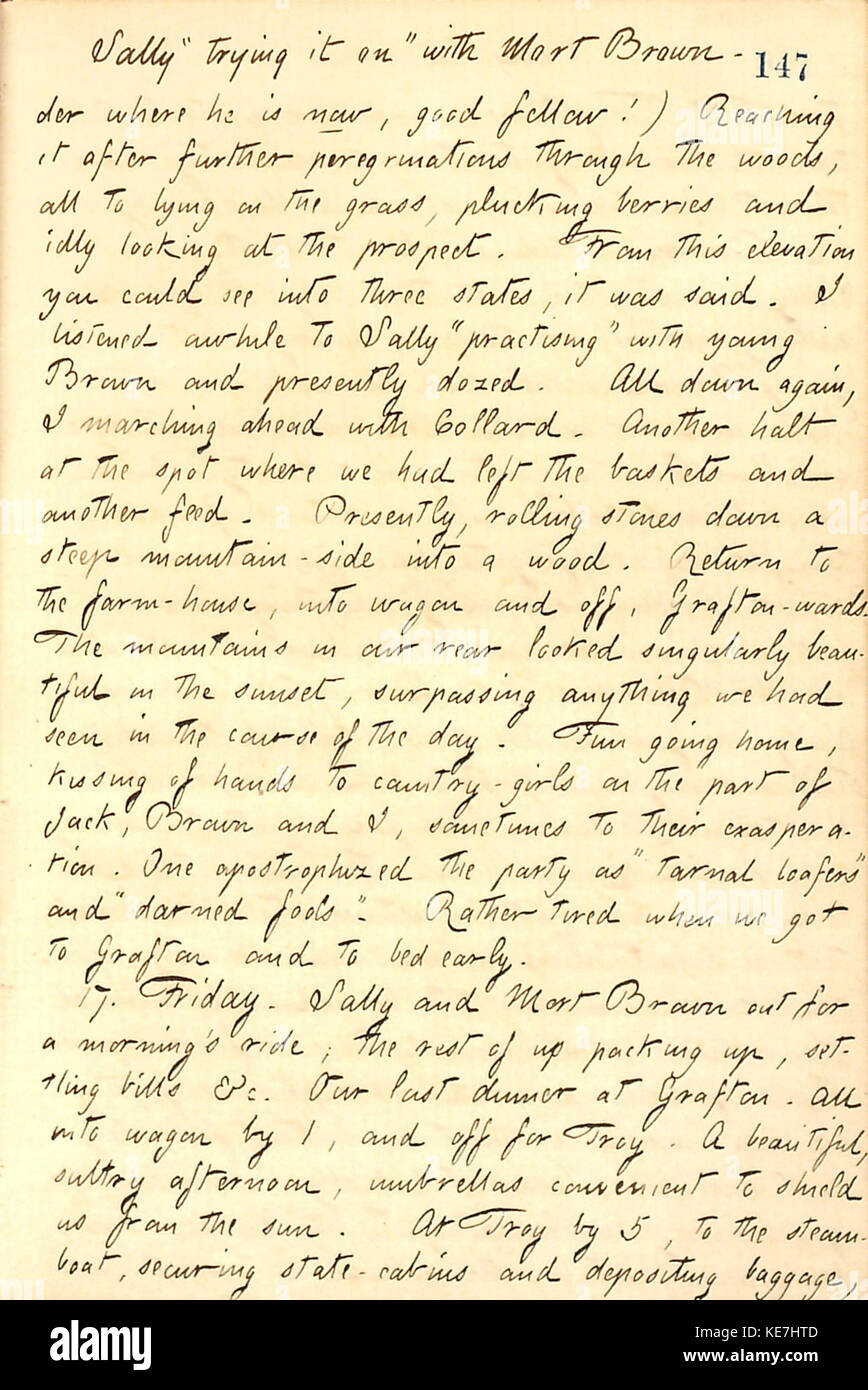 Sally "trying it on" with Mort Brown-
147
der where he is now, good fellow!) Reaching
it after further peregrinations through the woods,
all to lying on the grass, plucking berries and
idly looking at the prospect. From this elevation
you could see into three states, it was said. I
listened awhile to Sally "practising" with young
Brown and presently dozed. All down again,
I marching ahead with Collard. Another halt
at the spot where we had left the baskets and
another feed. Presently, rolling stones down a
steep mountain-side into a wood. Return to
the farm-house, into wagon and off, Grafton-wards.
The mountains in our rear looked singularly beau-
tiful in the sunset, surpassing anything we had
seen in the course of the day. Fun going home,
kissing of hands to country-girls on the part of
Jack, Brown and I, sometimes to their exaspera-
tion. One apostrophized the party as "tarnal loafers"
and "darned fools". Rather tired when we got
to Grafton and to bed early.
17. Friday. Sally and Mort Brown out for
a morning's ride; the rest of us packing up, set-
tling bills &c. Our last dinner at Grafton. All
into wagon by 1, and off for Troy. A beautiful,
sultry afternoon, umbrellas convenient to shield
us from the sun. At Troy by 5, to the steam-
boat, securing state-cabins and depositing baggage,
alamy
Image ID: KE7HTD
www.alamy.com